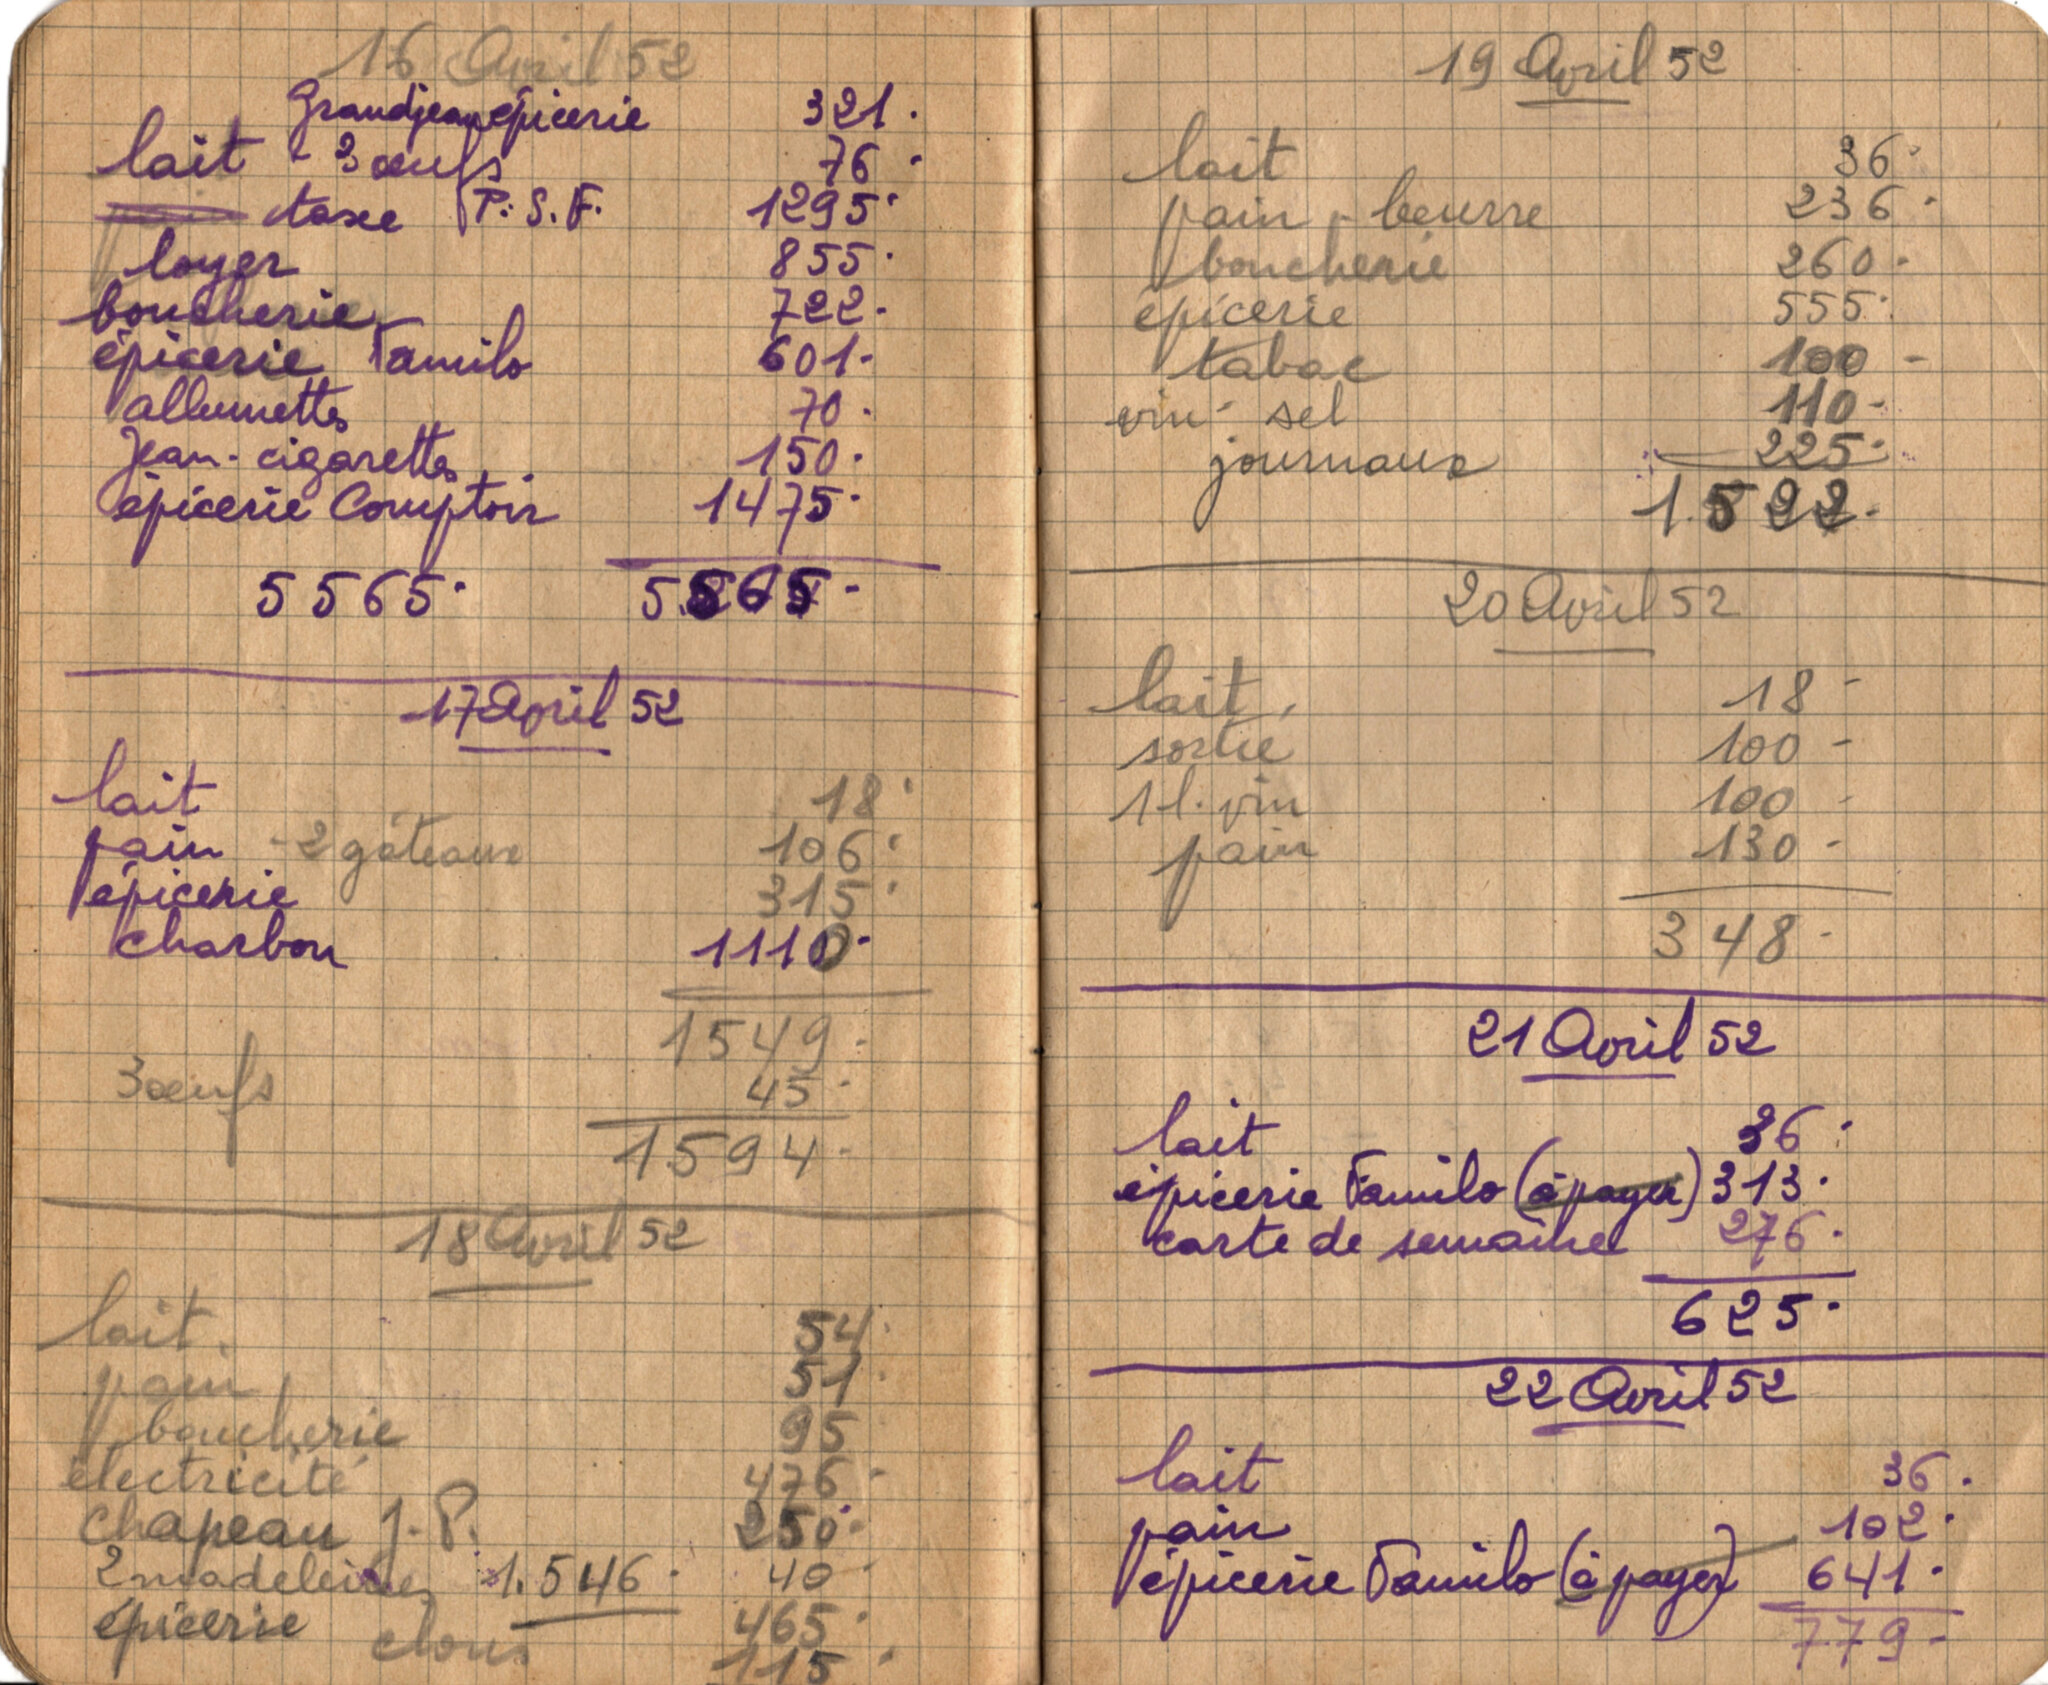 16 Avril 52
Grandjean épicerie 321.
lait - 3 œufs 76.
taxe P.S.F. 1295.
loyer 855.
boucherie 722.
épicerie Familo 601.
allumettes 70.
Jean - cigarettes 150.
épicerie Comptoir 1475.
5565. 5.565.
17 Avril 52
lait 18.
pain - 2 gâteaux 106.
épicerie 315.
charbon 1110.
1549.
3 œufs 45.
1594.
18 Avril 52
lait. 54.
pain 51.
boucherie 95
électricité 476.
chapeau J.P. 250.
2 madeleines 1.546. 40.
épicerie 465.
clous 115.
19 Avril 52
lait 36.
pain - beurre 236.
boucherie 260.
épicerie 555.
tabac 100 -
vin - sel 110 -
journaux 225.
1.522.
20 Avril 52
lait. 18 -
sortie 100 -
1 l. vin 100 -
pain 130 -
348 -
21 Avril 52
lait 36.
épicerie Familo (à payer) 313.
carte de semaine 276.
625.
22 Avril 52
lait 36.
pain 102.
épicerie Familo (à payer) 641.
779 -